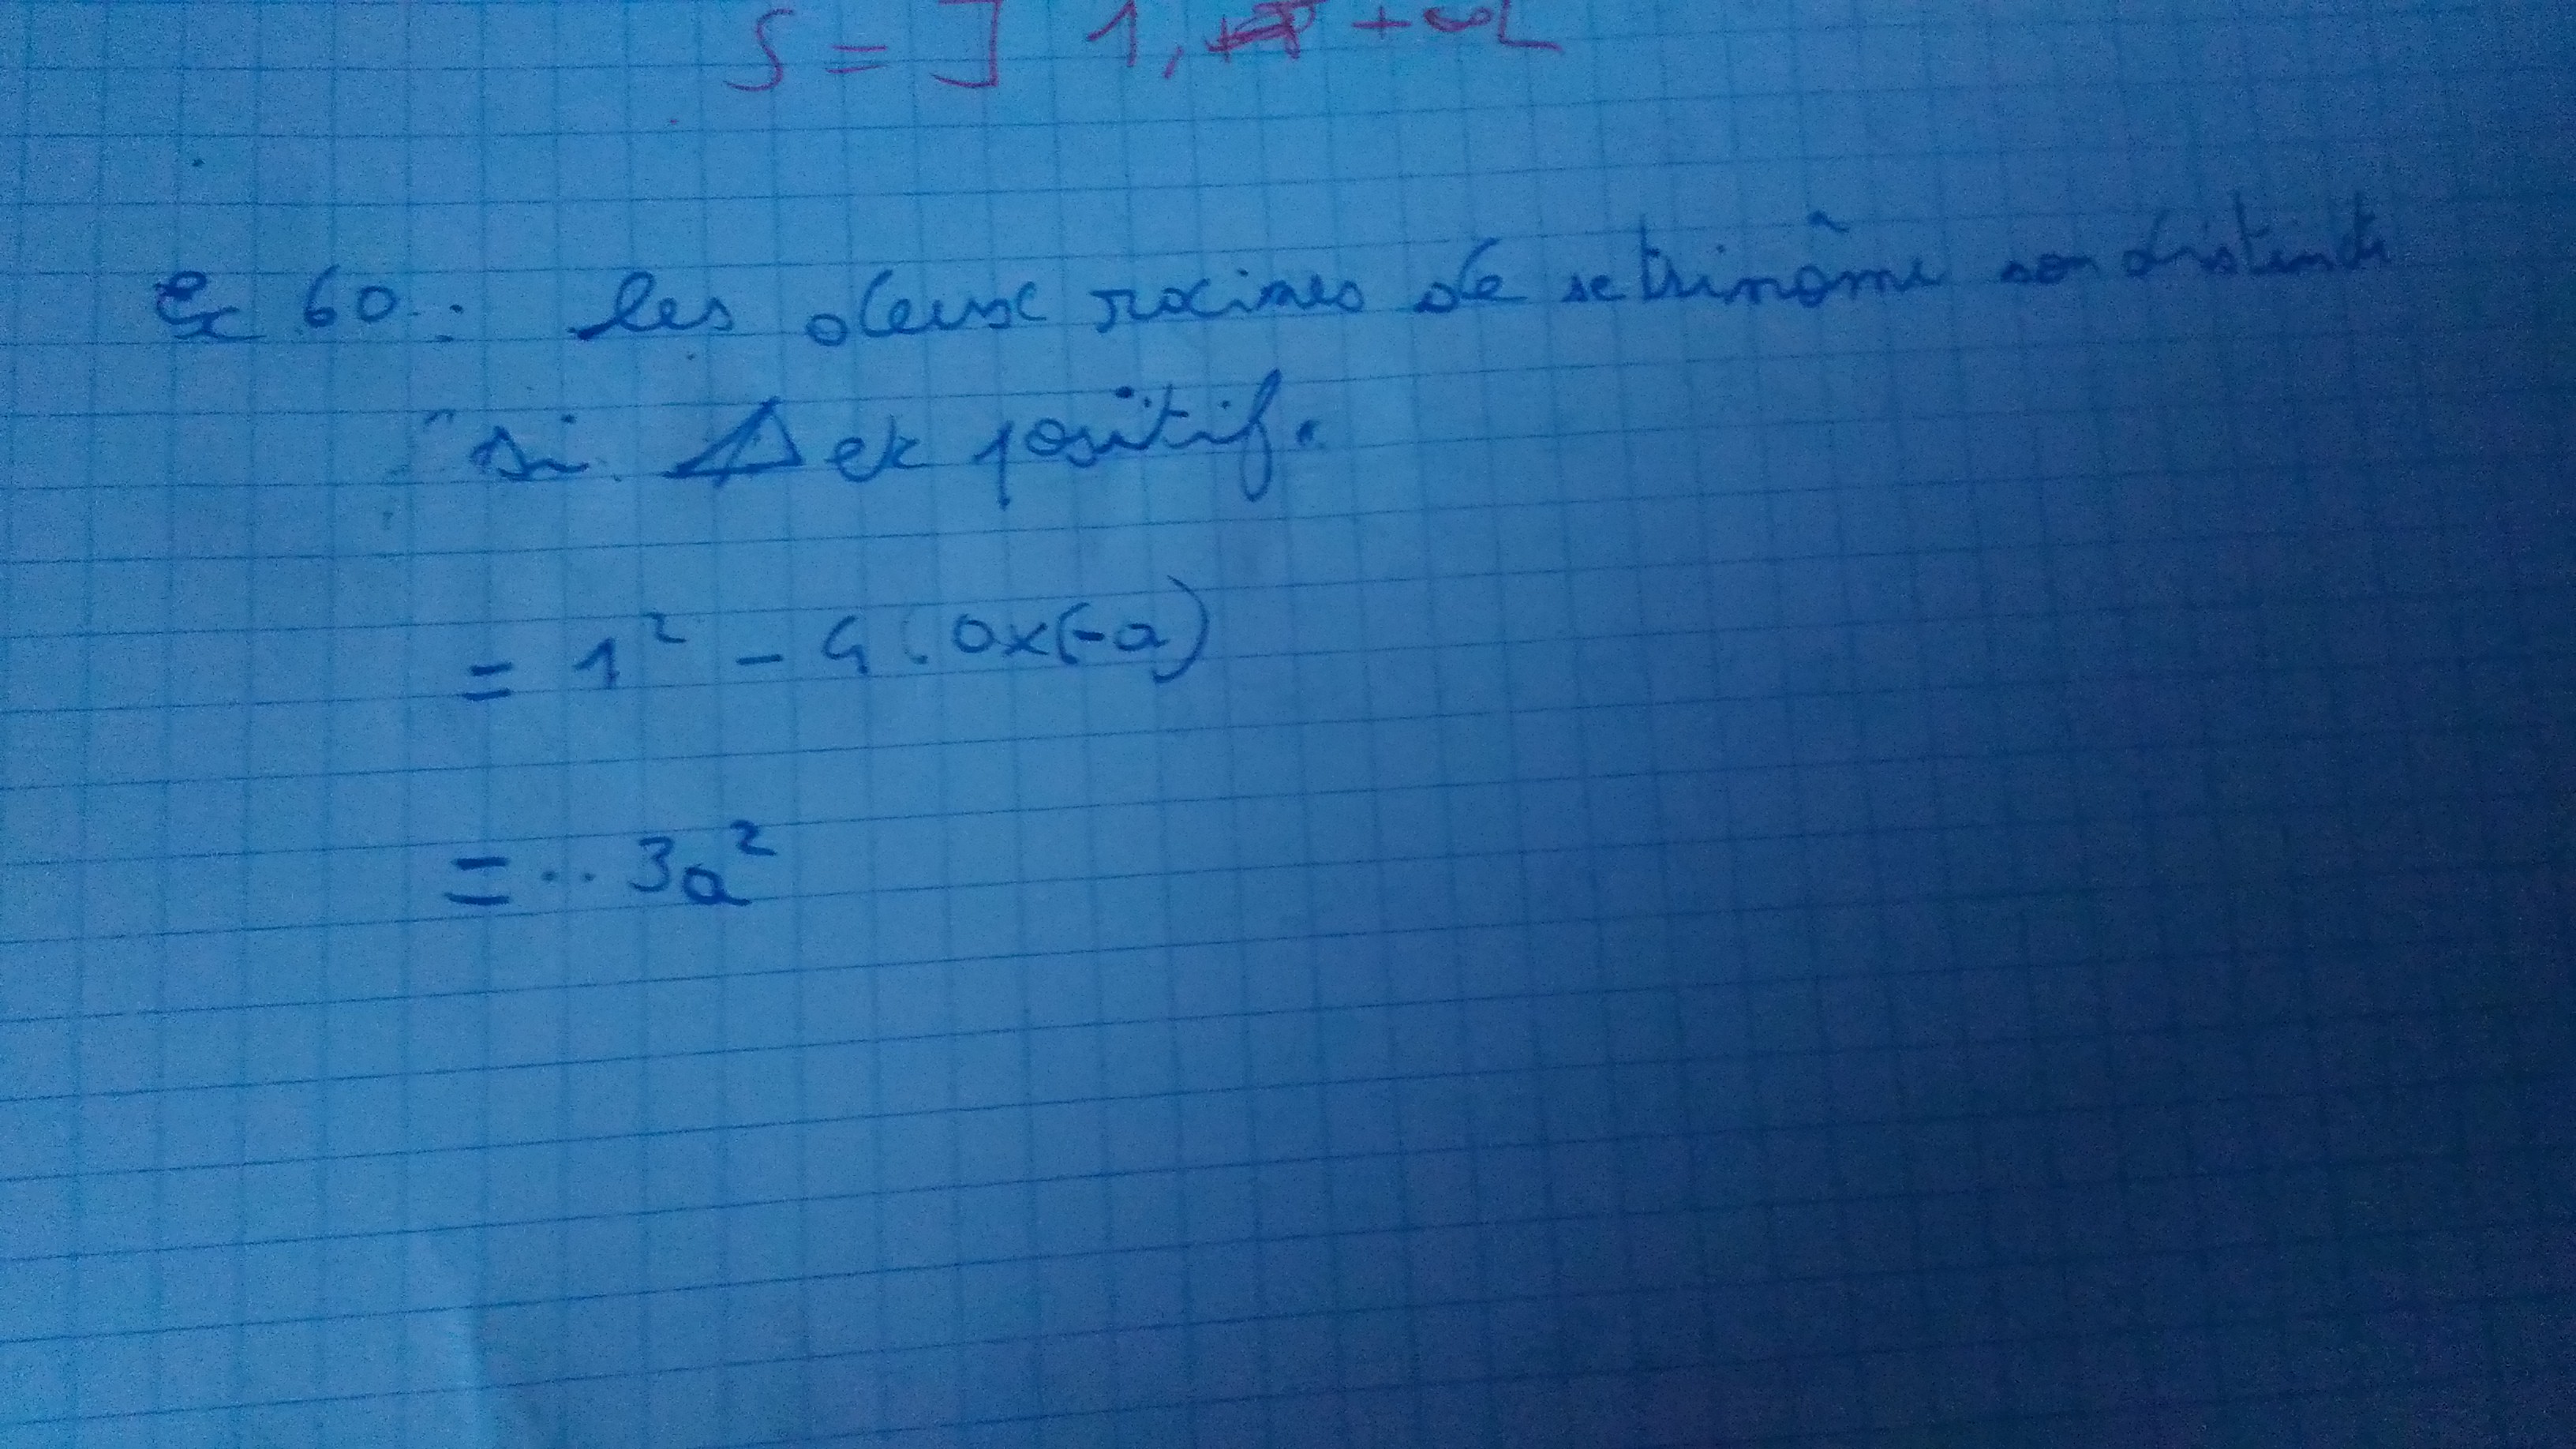 S = ] 1, +∞[
Ex 60 : les deux racines de se trinôme son distincts
si Δ est positif.
= 1² - 4 . a×(-a)
= .. 3a²